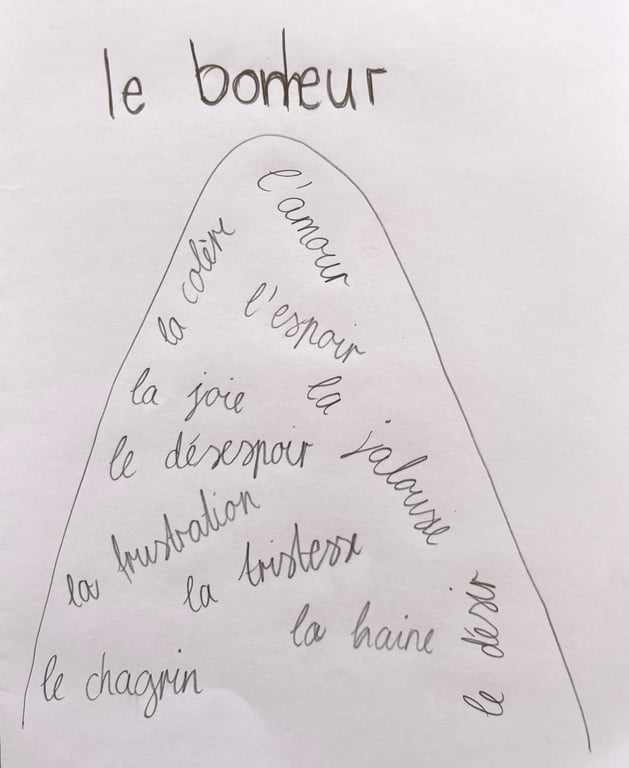 le bonheur
l'amour
la colère
l'espoir
la joie
la jalousie
le désespoir
la frustration
la tristesse
la haine
le désir
le chagrin